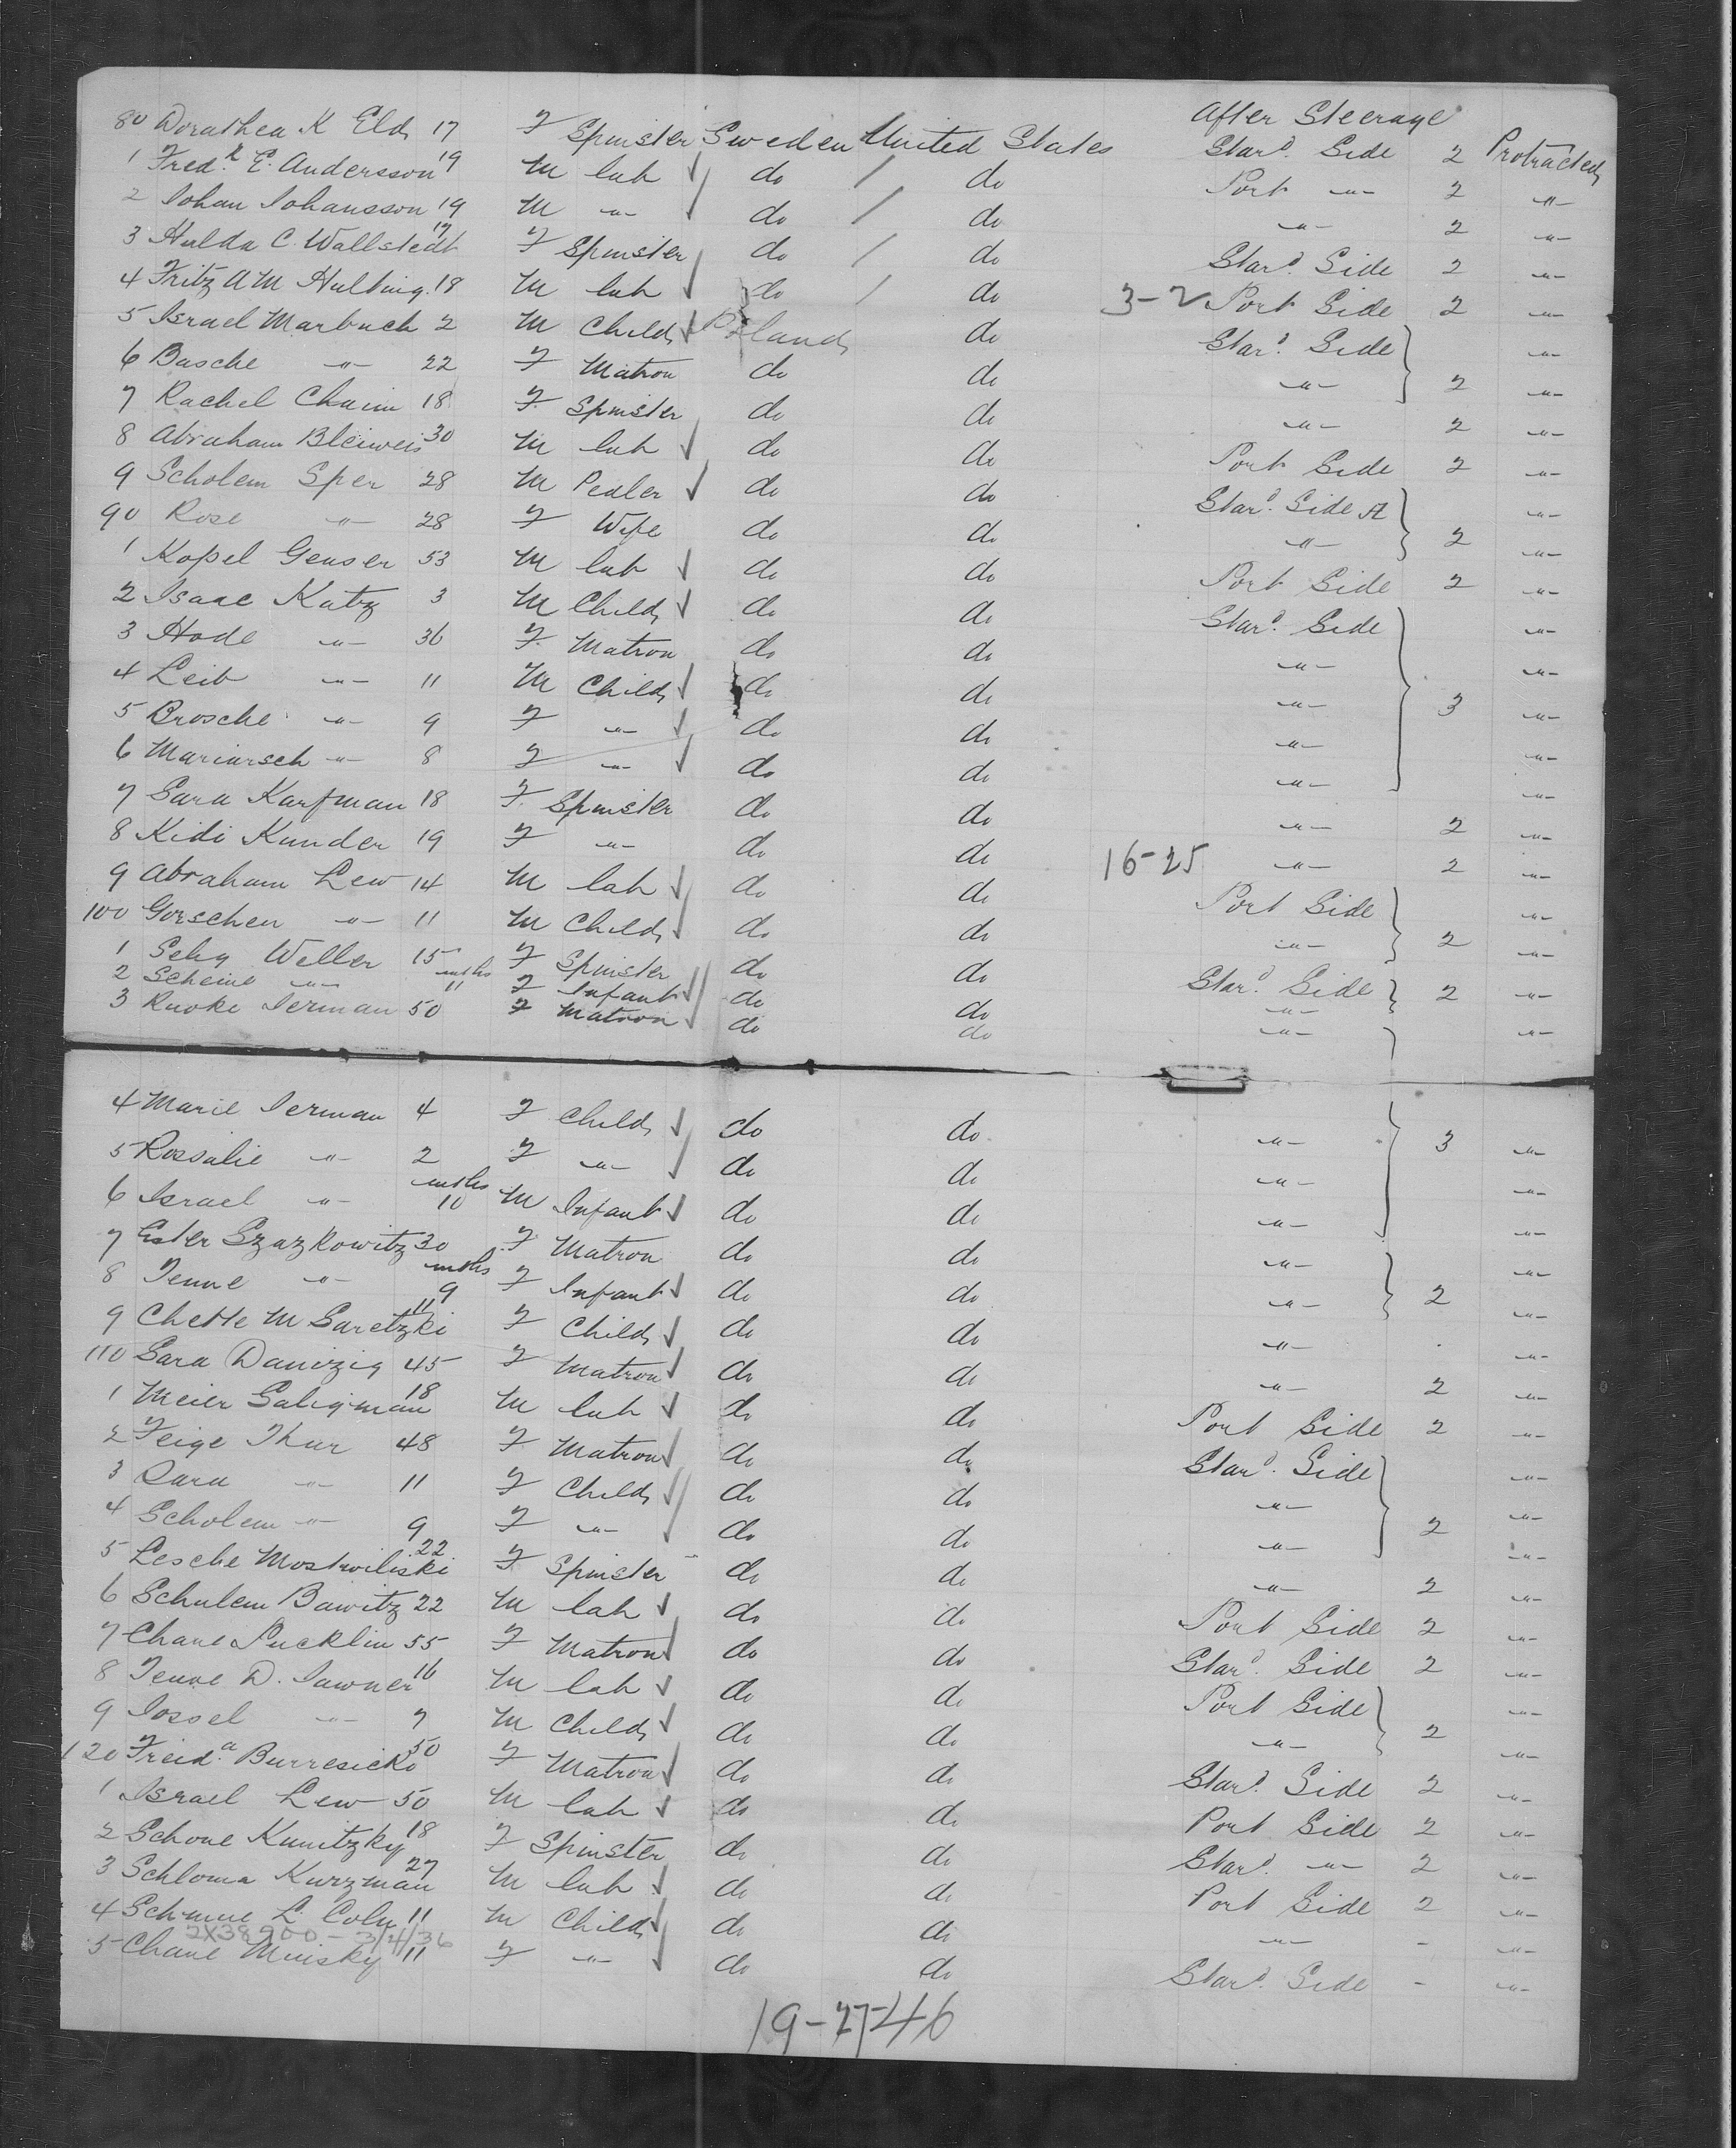 After Steerage
80 Dorathea K Eld 17 F Spinster Sweden United States Star^d. Side 2 Protracted
1 Fred^k. E. Andersson 19 M lab do do Port -"- 2 -"-
2 Johan Johansson 19 M -"- do do -"- 2 -"-
3 Hulda C. Wallstedt 17 F Spinster do do Star^d. Side 2 -"-
4 Fritz A M Hulting. 18 M lab do do 3-2 Port Side 2 -"-
5 Israel Marbuch 2 M Child Poland do Star^d. Side -"-
6 Basche -"- 22 F Matron do do -"- 2 -"-
7 Rachel Chaim 18 F. Spinster do do -"- 2 -"-
8 Abraham Bleiweis 30 M lab do do Port Side 2 -"-
9 Scholem Sper 28 M Pedler do do Star^d. Side A -"-
90 Rose -"- 28 F Wife do do -"- 2 -"-
1 Kopel Genser 53 M lab do do Port Side 2 -"-
2 Isaac Katz 3 M Child do do Star^d. Side -"-
3 Hode -"- 36 F. Matron do do -"- -"-
4 Leib -"- 11 M Child do do -"- 3 -"-
5 Brosche -"- 9 F -"- do do -"- -"-
6 Mariarsch -"- 8 F -"- do do -"- -"-
7 Sara Karfman 18 F. Spinster do do -"- 2 -"-
8 Kidi Kunder 19 F -"- do do 16-25 -"- 2 -"-
9 Abraham Lew 14 M lab do do Port Side -"-
100 Gorschen -"- 11 M Child do do -"- 2 -"-
1 Selig Weller 15 F Spinster do do Star^d. Side 2 -"-
2 Scheine -"- mths 11 F Infant do do -"-
3 Rwoke Jerman 50 F Matron do do -"- -"-
4 Marie Jerman 4 F Child do do -"- 3 -"-
5 Rossalie -"- 2 F -"- do do -"- -"-
6 Israel -"- mths 10 M Infant do do -"- -"-
7 Ester Szazkowitz 30 F Matron do do -"- -"-
8 Jenne -"- mths 9 F Infant do do -"- 2 -"-
9 Chette M Saretzki 11 F Child do do -"- -"-
110 Sara Danizig 45 F Matron do do -"- 2 -"-
1 Meier Saligman 18 M lab do do Port Side 2 -"-
2 Feige Thur 48 F Matron do do Star^d. Side -"-
3 Sara -"- 11 F Child do do -"- -"-
4 Scholem -"- 9 F -"- do do -"- 2 -"-
5 Lesche Mostwiliski 22 F. Spinster do do -"- 2 -"-
6 Schulem Bawitz 22 M lab do do Port Side 2 -"-
7 Chane Pucklin 55 F Matron do do Star^d. Side 2 -"-
8 Jenne D. Jawner 16 M lab do do Port Side -"-
9 Jossel -"- 7 M Child do do -"- 2 -"-
120 Freid^a. Burresicko 50 F Matron do do Star^d. Side 2 -"-
1 Israel Lew 50 M lab do do Port Side 2 -"-
2 Schone Kunitzky 18 F Spinster do do Star^d. -"- 2 -"-
3 Schloma Kurzman 27 M lab do do Port Side 2 -"-
4 Schmue L. Coln 11 M Child do do -"- - -"-
2X38900-3/4/36
5 Chane Minsky 11 F -"- do do Star^d. Side - -"-
19-27-46